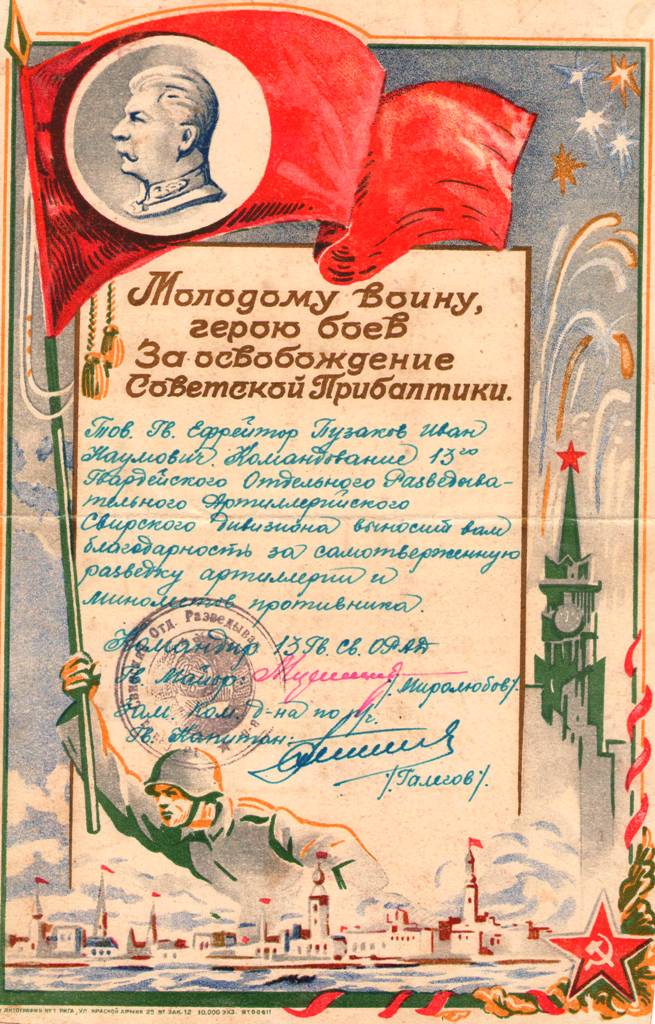 Молодому воину,
герою боев
За освобождение
Советской Прибалтики.
Тов. Гв. Ефрейтор Пузаков Иван
Наумович. Командование 13го
Гвардейского Отдельного Разведыва-
тельного Артиллерийского
Свирского Дивизиона выносит вам
благодарность за самотверженную
разведку артиллерии и
минометов противника
Командир 13 Гв. Св. ОРАД
Гв. Майор: /Миролюбов/.
Зам. Ком. Д-на по п/ч.
Гв. Капитан:
/Галегов/.
Отд. Разведыва
ЛИТОГРАФИЯ № 1 РИГА, УЛ. КРАСНОЙ АРМИИ 25 № ЗАК. 12 10,000 ЭКЗ.